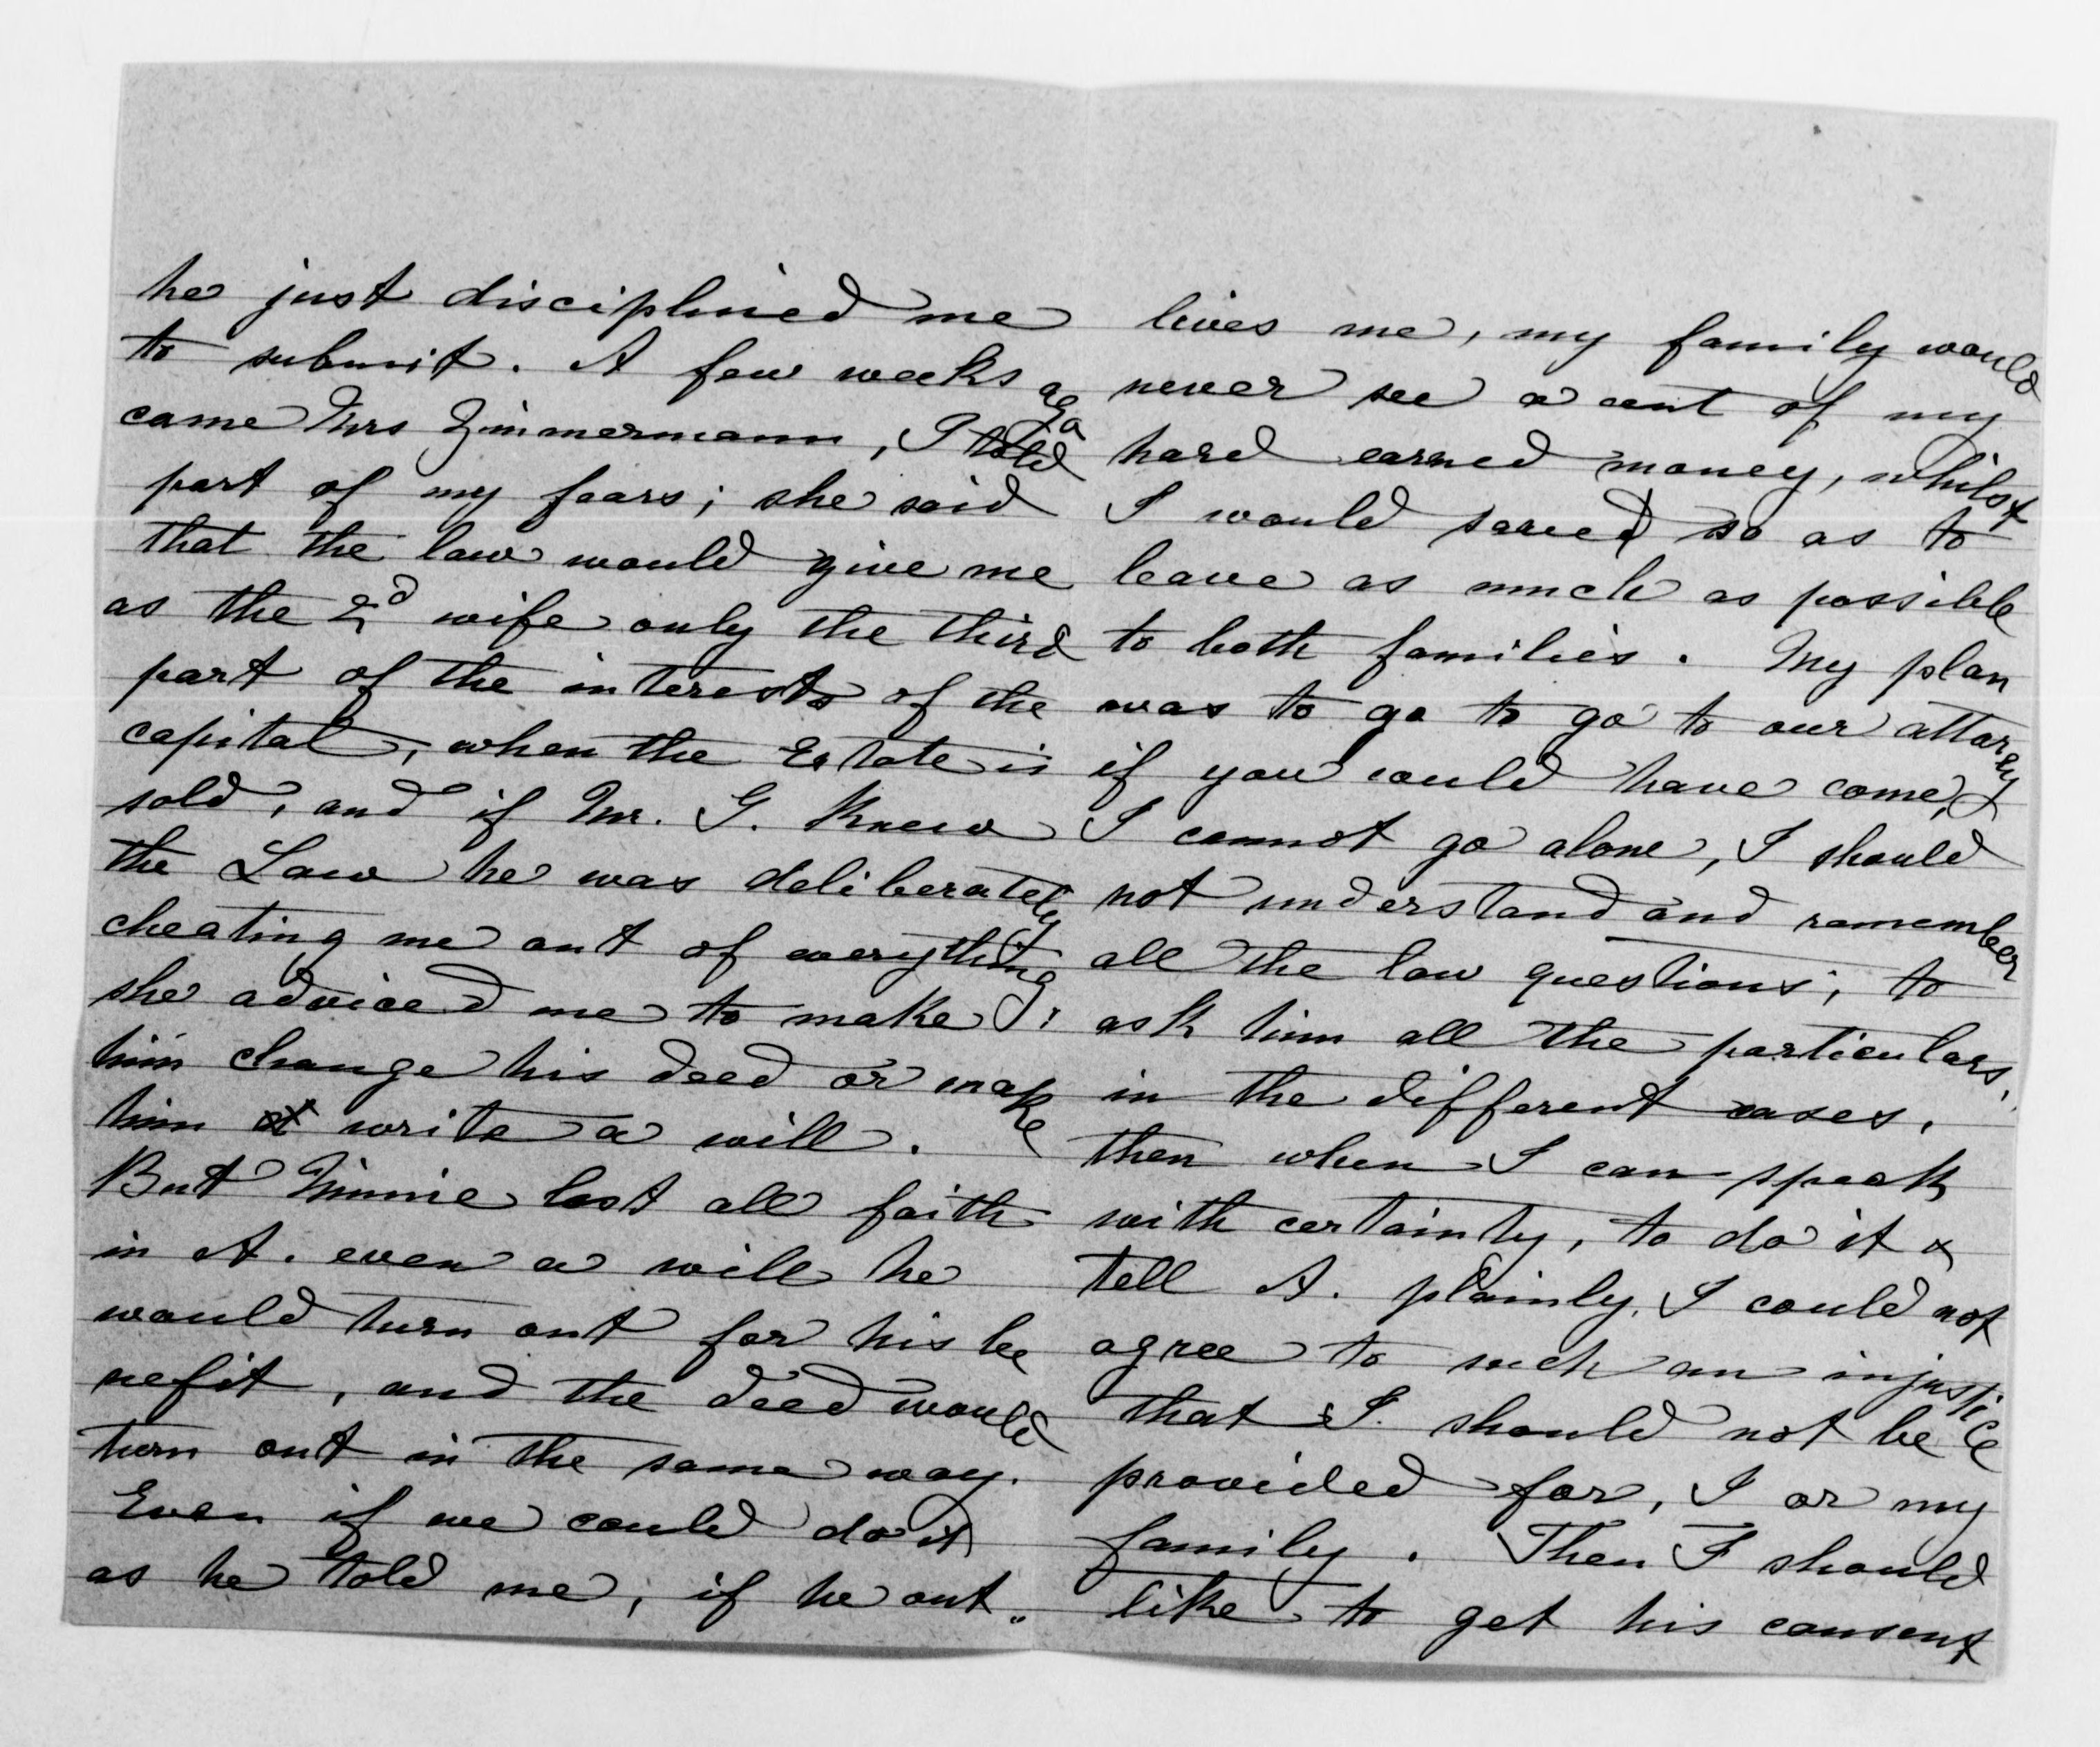 he just disciplined me
to submit. A few weeks ago
came Mrs Zimmermann, I told
part of my fears; she said
that the law would give me
as the 2d wife only the third
part of the interests of the
capital, when the Estate is
sold, and if Mr. G. knew
the Law he was deliberately
cheating me out of everything;
she adviced me to make
him change his deed or make
him write a will.
But Minnie lost all faith
in A. even a will he
would turn out for his be
nefit, and the deed would
turn out in the same way.
Even if we could do it
as he told me, if he out„
lives me, my family would
never see a cent of my
hard earned money, whilst
I would saved so as to
leave as much as possible
to both families. My plan
was to go to go to our attorney
if you could have come,
I cannot go alone, I should
not understand and remember
all the law questions; to
ask him all the particulars,
in the different cases,
then when I can speak
with certainty, to do it &
tell A. plainly, I could not
agree to such an injustice
that I. should not be
provided for, I or my
family. Then I should
like to get his consent